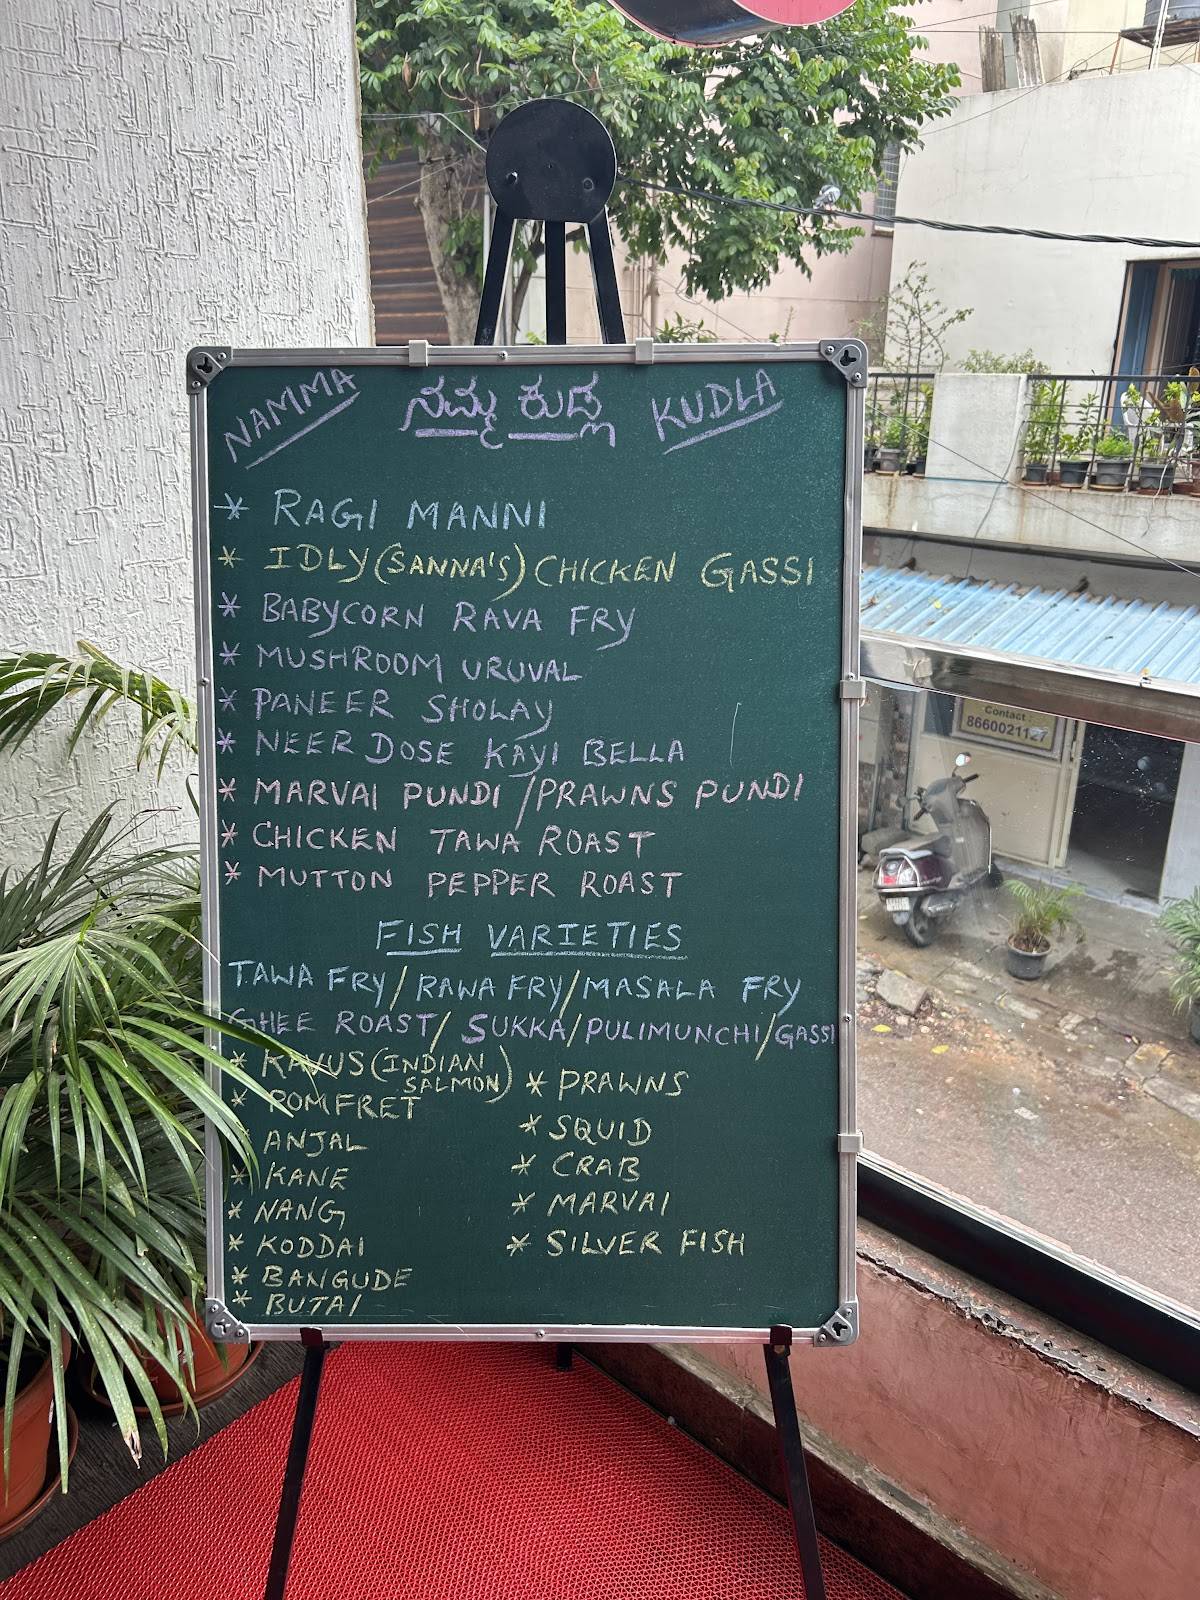 NAMMA ನಮ್ಮ ಕುಡ್ಲ KUDLA
* RAGI MANNI
* IDLY (SANNA'S) CHICKEN GASSI
* BABYCORN RAVA FRY
* MUSHROOM URUVAL
* PANEER SHOLAY
* NEER DOSE KAYI BELLA
* MARVAI PUNDI / PRAWNS PUNDI
* CHICKEN TAWA ROAST
* MUTTON PEPPER ROAST
FISH VARIETIES
TAWA FRY / RAWA FRY / MASALA FRY
GHEE ROAST / SUKKA / PULIMUNCHI / GASSI
* KANUS (INDIAN SALMON)
* POMFRET
* ANJAL
* KANE
* NANG
* KODDAI
* BANGUDE
* BUTAI
* PRAWNS
* SQUID
* CRAB
* MARVAI
* SILVER FISH
Contact :
8660021127